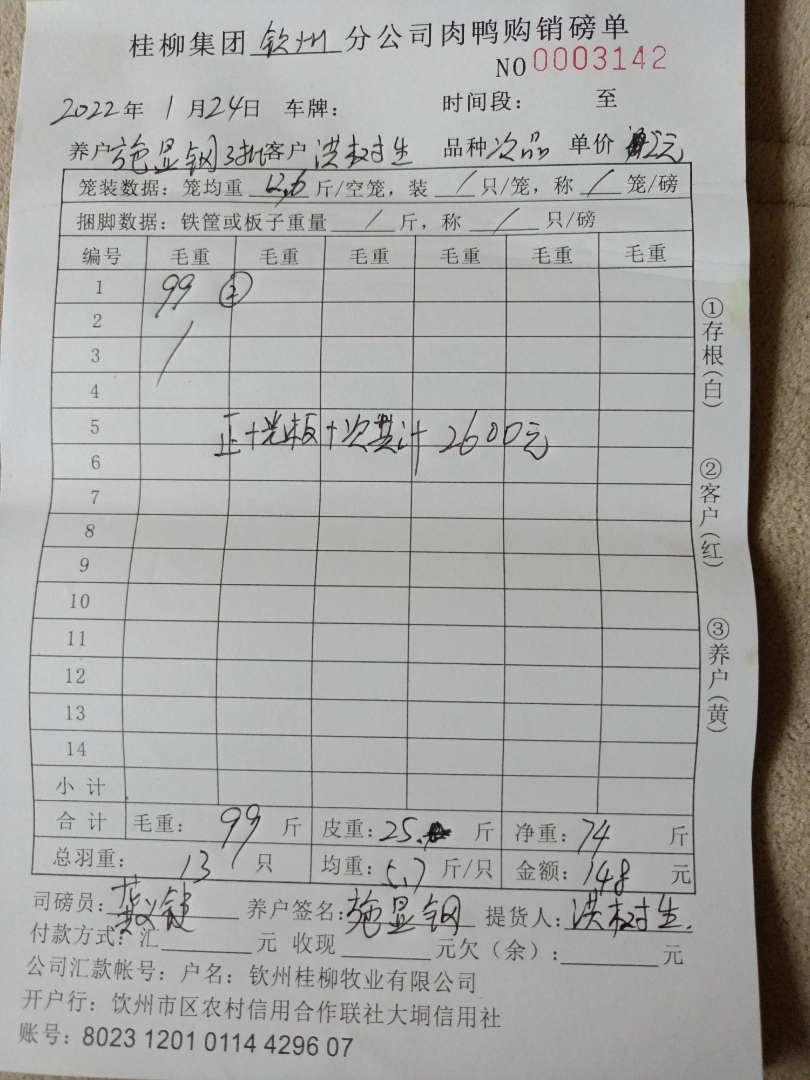 桂柳集团 钦州 分公司肉鸭购销磅单
NO 0003142
2022年 1月24日 车牌: 时间段: 至
养户 施显钢 3批 客户 洪权生 品种 次品 单价 2元
笼装数据: 笼均重 12.6 斤/空笼, 装 / 只/笼, 称 / 笼/磅
捆脚数据: 铁筐或板子重量 / 斤, 称 / 只/磅
编号 毛重 毛重 毛重 毛重 毛重 毛重
1 99 ②
2
3 /
4
5 正+光板+次共计 2600元
6
7
8
9
10
11
12
13
14
小计
合计 毛重: 99 斤 皮重: 25. 斤 净重: 74 斤
总羽重: 13 只 均重: 5.7 斤/只 金额: 148 元
司磅员: 养户签名: 施显钢 提货人: 洪权生.
付款方式: 汇 元 收现 元欠(余): 元
公司汇款帐号: 户名: 钦州桂柳牧业有限公司
开户行: 钦州市区农村信用合作联社大垌信用社
账号: 8023 1201 0114 4296 07
①存根(白)
②客户(红)
③养户(黄)